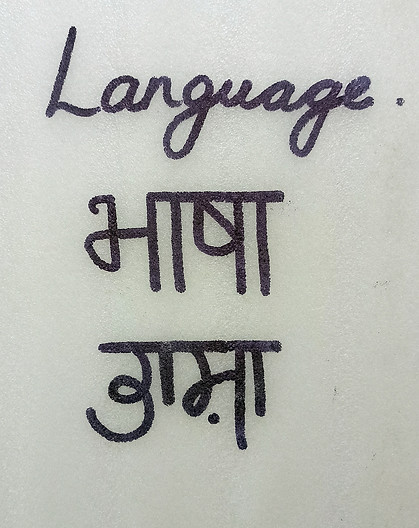 Language.
भाषा
ਭਾਸ਼ਾ